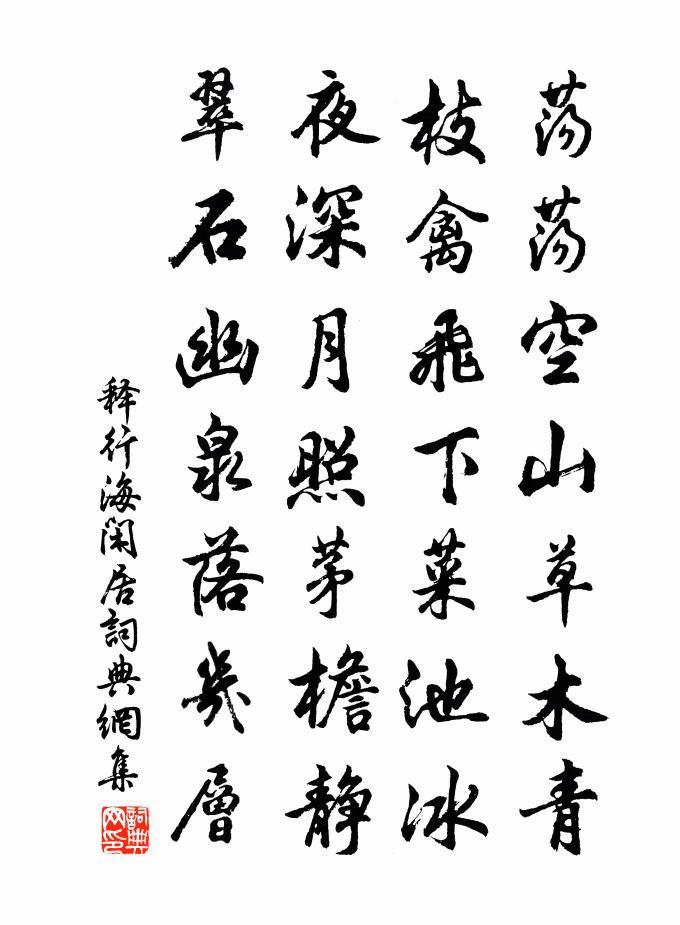 荡荡空山草木青
枝禽飛下菜池冰
夜深月照茅檐静
翠石幽泉落幾層
释行海闲居詞典網集
詞典网印